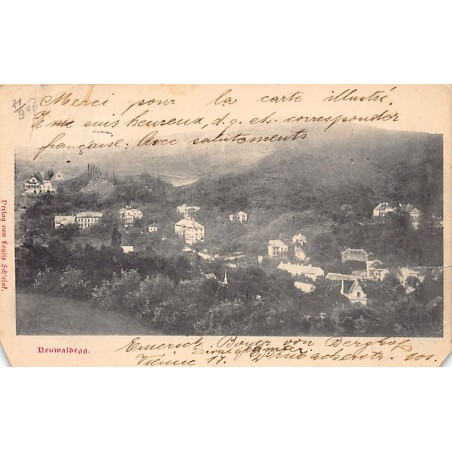 21/9
Merci pour la carte illustré.
Je me suis heureux, d. g. ch. correspondar
française. Avec salutements
Verlag von Louise Schiefal.
Neuwaldegg.
Emerich Boyer von Berghof
Vienne 17.